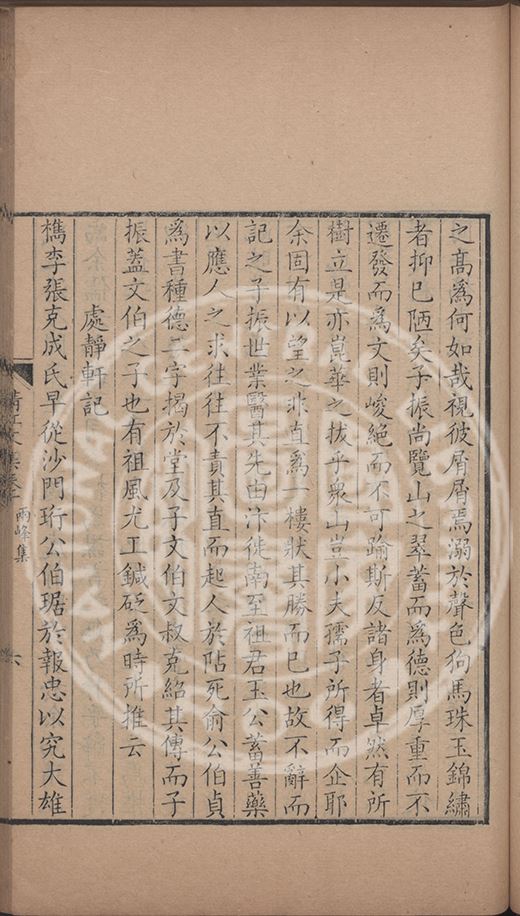 之高爲何如哉視彼屑屑焉溺於聲色狗馬珠玉錦繡
者抑已陋矣子振尚覽山之翠蓄而爲德則厚重而不
遷發而爲文則峻絕而不可踰斯反諸身者卓然有所
樹立是亦崑華之拔乎衆山豈小夫孺子所得而企耶
余固有以望之非直爲一樓狀其勝而已也故不辭而
記之子振世業醫其先由汴徙南至祖君玉公蓄善藥
以應人之求往往不責其直而起人於阽死俞公伯貞
爲書種德二字揭於堂及子文伯文叔克紹其傳而子
振蓋文伯之子也有祖風尤工鍼砭爲時所推云
處靜軒記
檇李張克成氏早從沙門珩公伯琚於報忠以究大雄
清江文集卷 兩峰集
六